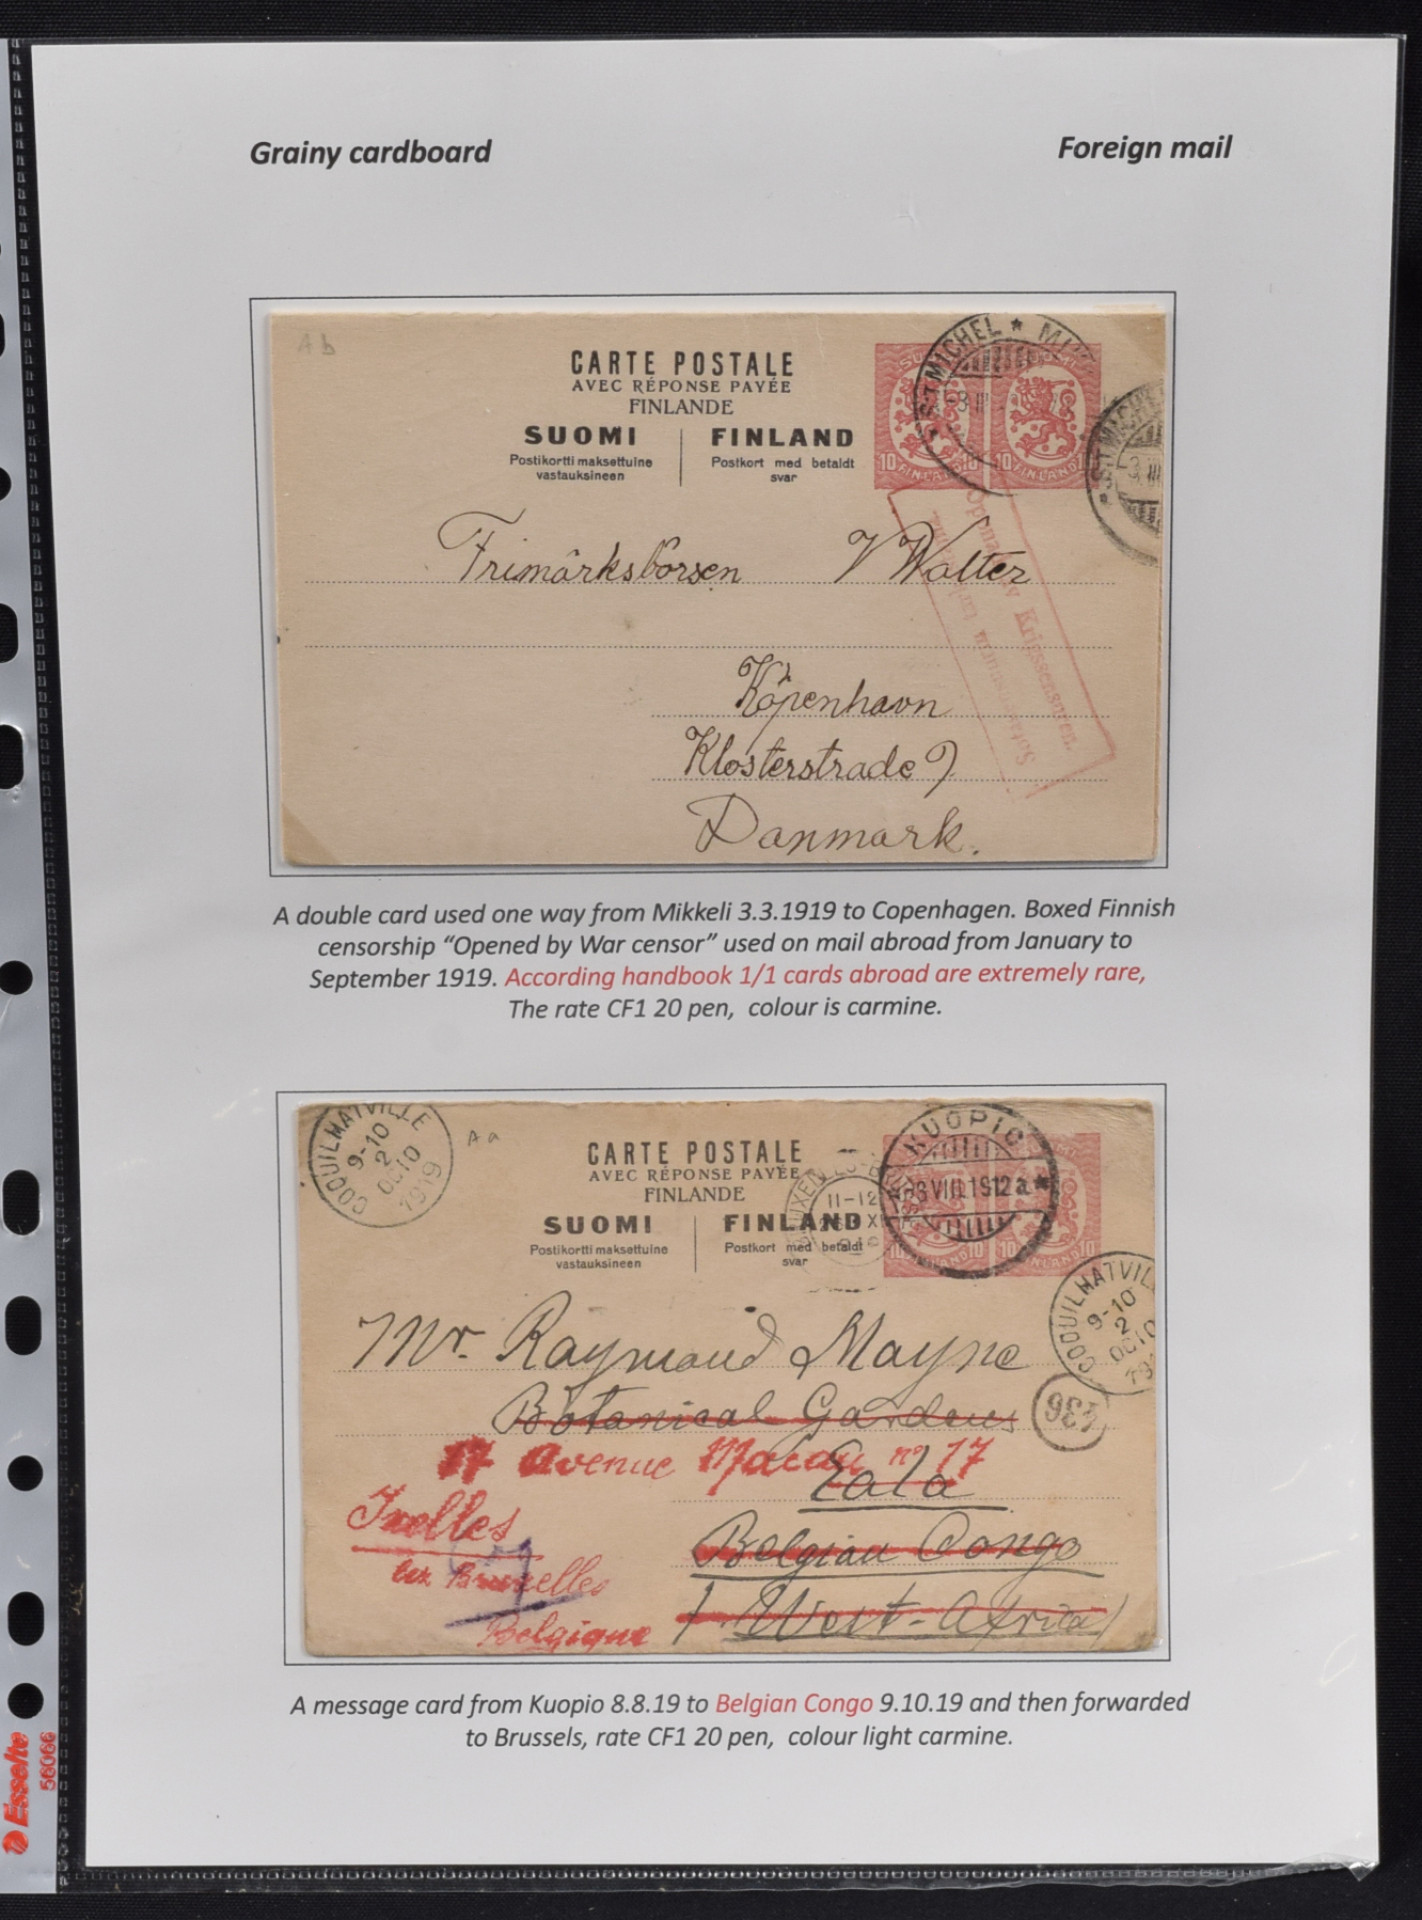 Grainy cardboard
Foreign mail
A b
CARTE POSTALE
AVEC RÉPONSE PAYÉE
FINLANDE
SUOMI
FINLAND
Postikortti maksettuine
vastauksineen
Postkort med betaldt
svar
S:T MICHEL ★ MI
-3 III
10 FINLAND 10
10 FINLAND 1
S:T MICHE
3 III
av Krigssensuren.
Sotasensuurin
Frimärksbörsen V Walter
Köpenhavn
Klosterstrade 9.
Danmark.
A double card used one way from Mikkeli 3.3.1919 to Copenhagen. Boxed Finnish
censorship “Opened by War censor” used on mail abroad from January to
September 1919. According handbook 1/1 cards abroad are extremely rare,
The rate CF1 20 pen, colour is carmine.
COQUILHATVILLE
9-10
2
OC10
1919
A a
CARTE POSTALE
AVEC RÉPONSE PAYÉE
FINLANDE
SUOMI
FINLAND
Postikortti maksettuine
vastauksineen
Postkort med betaldt
svar
11-12
KUOPIO
8 VIII 19 12 a ★
COQUILHATVIL
9-10
2
OC10
19
436
Mr. Raymond Mayne
Botanical Gardens
17 Avenue Macau nº 17
Eala
Ixelles
Belgian Congo
lez Bruxelles
(West-Africa)
Belgique
A message card from Kuopio 8.8.19 to Belgian Congo 9.10.19 and then forwarded
to Brussels, rate CF1 20 pen, colour light carmine.
Esselte
56066